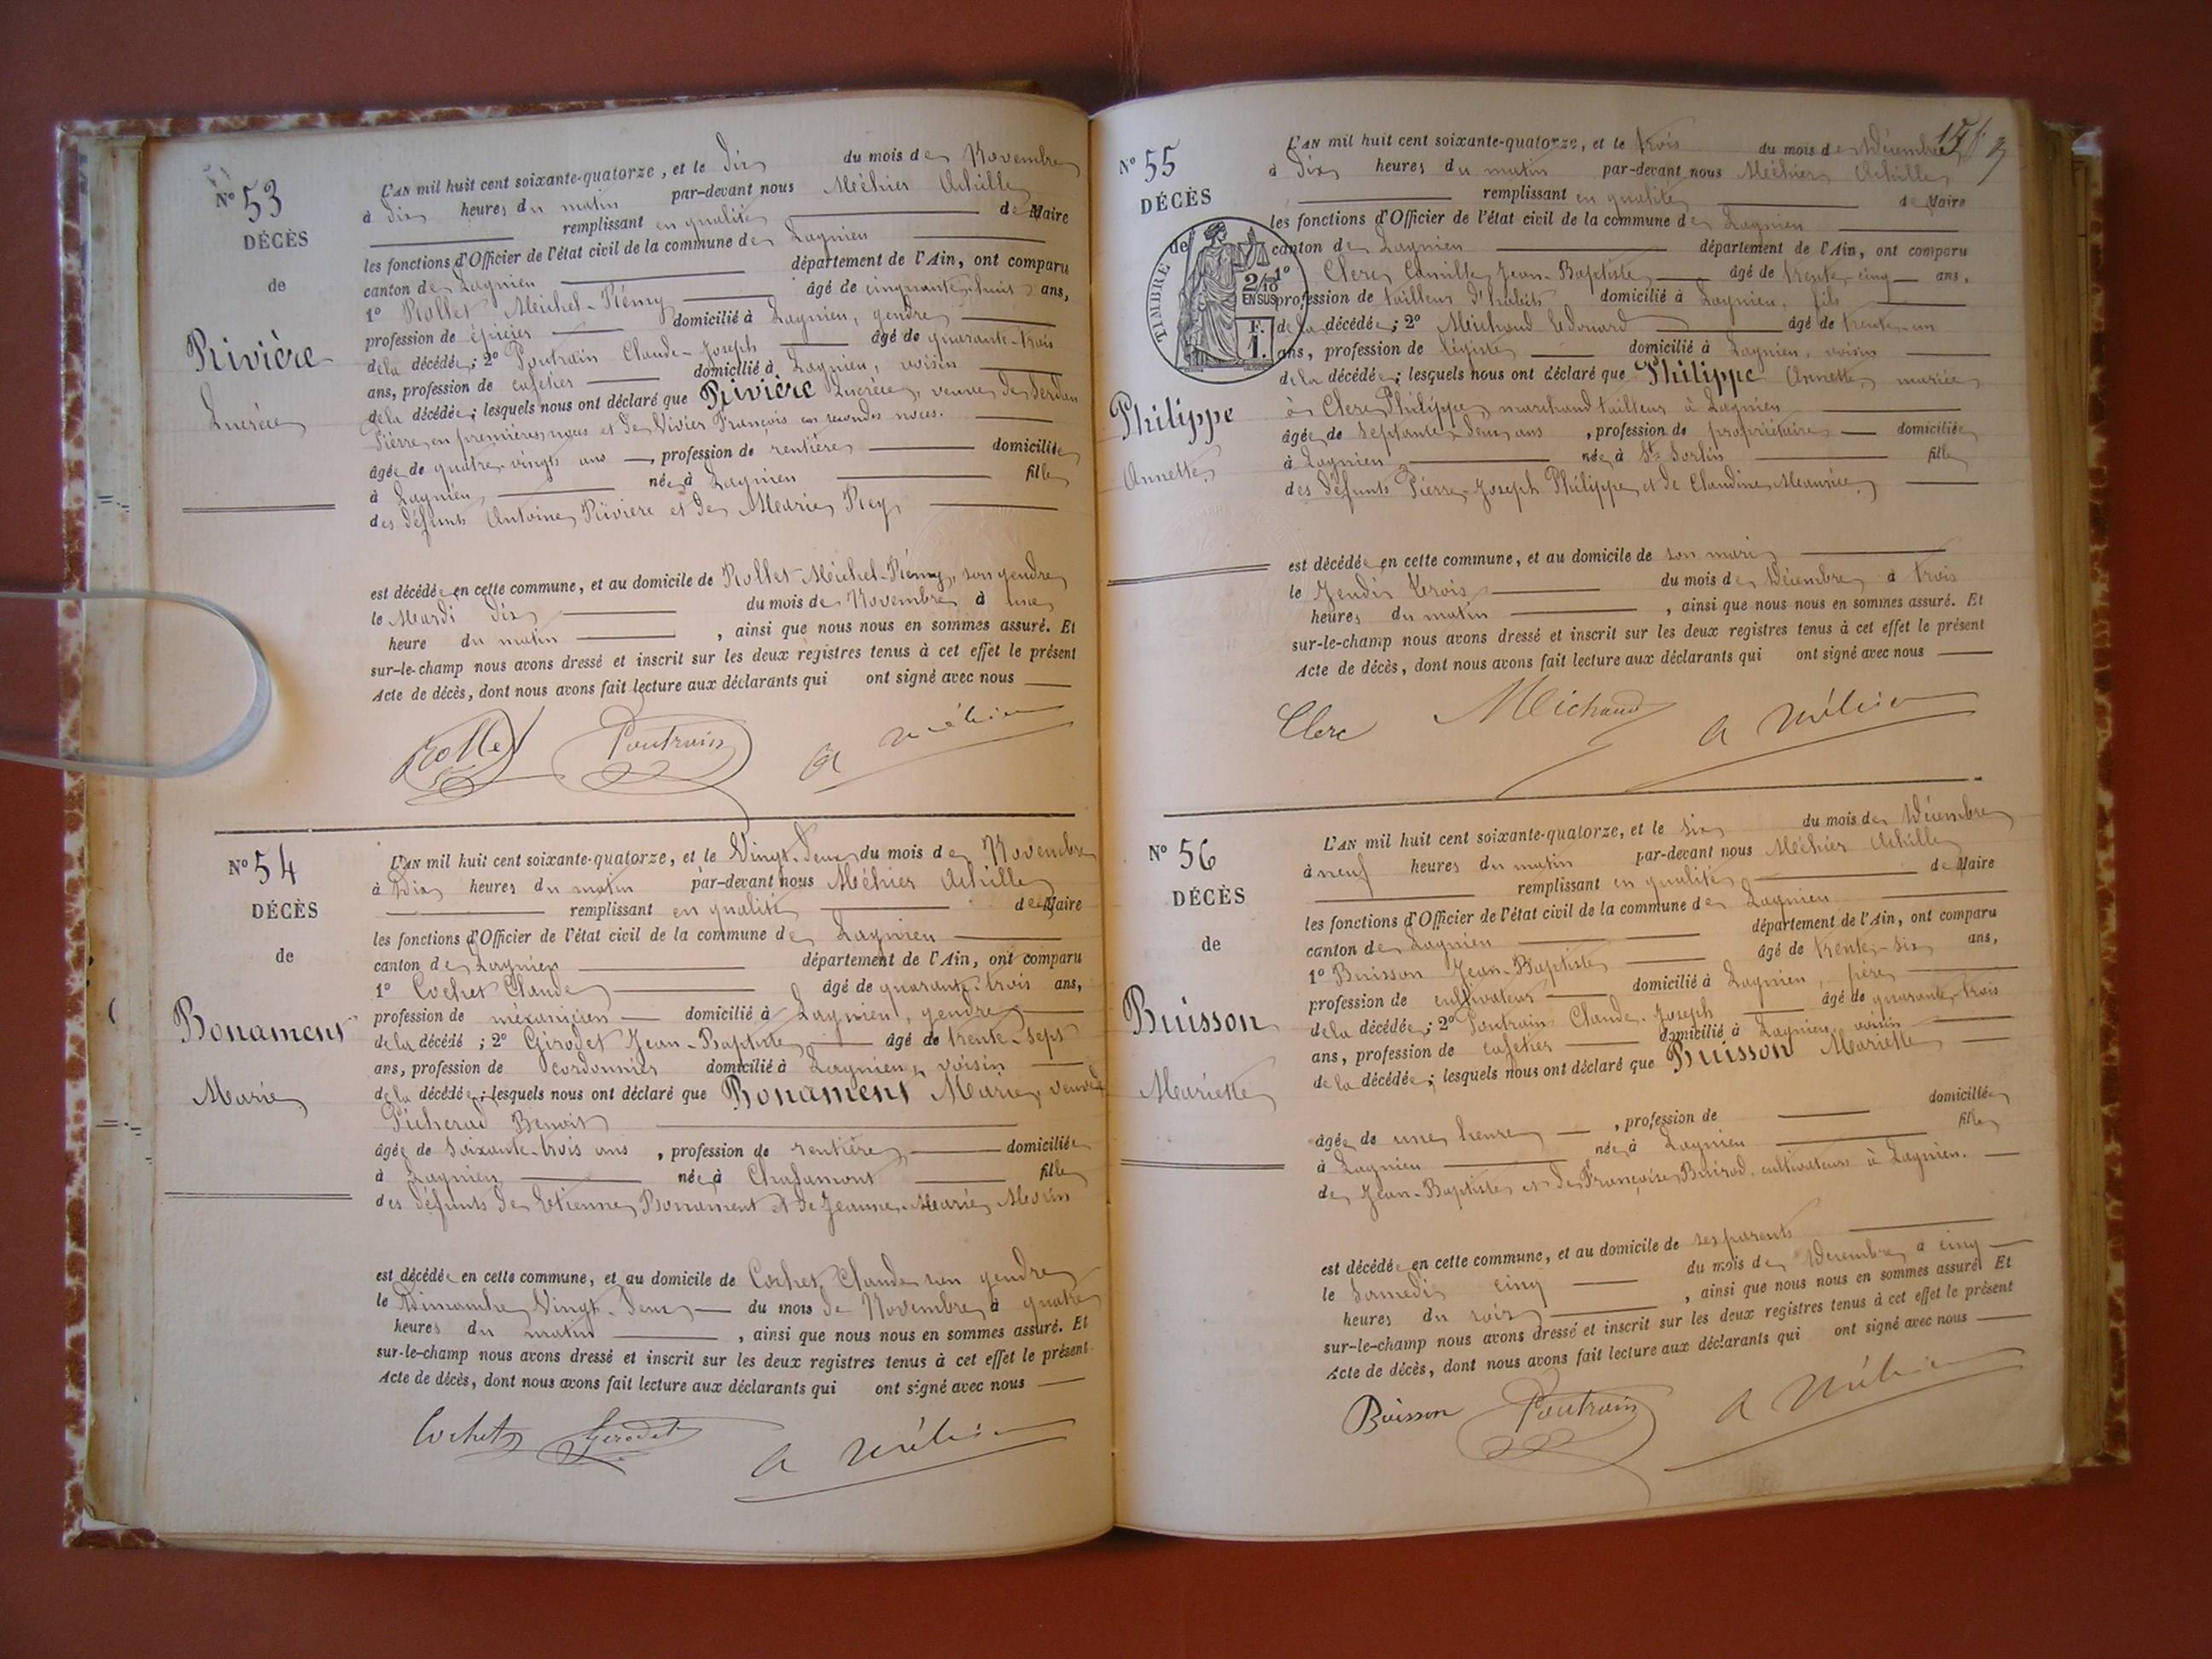 N° 53
DÉCÈS
de
Rivière
Lucrèce
L'AN mil huit cent soixante-quatorze, et le dix du mois de Novembre
à dix heures du matin par-devant nous Méhier Achille
remplissant en qualité de Maire
les fonctions d'Officier de l'état civil de la commune de Lagnieu
canton de Lagnieu département de l'Ain, ont comparu
1° Rollet Michel-Rémy âgé de cinquante-huit ans,
profession de épicier domicilié à Lagnieu, gendre
de la décédée; 2° Poutrain Claude-Joseph âgé de quarante-trois
ans, profession de cafetier domicilié à Lagnieu, voisin
de la décédée; lesquels nous ont déclaré que Rivière Lucrèce, veuve de Serdan
Pierre, en premières noces et de Vivier François en secondes noces.
âgée de quatre-vingts ans, profession de rentière domiciliée
à Lagnieu, née à Lagnieu fille
des défunts Antoine Rivière et de Marie Rey
est décédée en cette commune, et au domicile de Rollet Michel-Rémy, son gendre
le Mardi dix du mois de Novembre à une
heure du matin, ainsi que nous nous en sommes assuré. Et
sur-le-champ nous avons dressé et inscrit sur les deux registres tenus à cet effet le présent
Acte de décès, dont nous avons fait lecture aux déclarants qui ont signé avec nous
Rollet Poutrain A Méhier
N° 54
DÉCÈS
de
Bonament
Marie
L'AN mil huit cent soixante-quatorze, et le Vingt-deux du mois de Novembre
à Dix heures du matin par-devant nous Méhier Achille
remplissant en qualité de Maire
les fonctions d'Officier de l'état civil de la commune de Lagnieu
canton de Lagnieu département de l'Ain, ont comparu
1° Cochet Claude âgé de quarante-trois ans,
profession de mécanicien domicilié à Lagnieu, gendre
de la décédé; 2° Girodet Jean-Baptiste âgé de trente-sept
ans, profession de cordonnier domicilié à Lagnieu, voisin
de la décédée; lesquels nous ont déclaré que Bonament Marie, veuve
Picherad Benoit
âgée de soixante-trois ans, profession de rentière domiciliée
à Lagnieu née à Chalamont fille
des défunts de Etienne Bonament et de Jeanne-Marie Morin
est décédée en cette commune, et au domicile de Cochet Claude son gendre
le Dimanche Vingt-deux du mois de Novembre à quatre
heures du matin, ainsi que nous nous en sommes assuré. Et
sur-le-champ nous avons dressé et inscrit sur les deux registres tenus à cet effet le présent
Acte de décès, dont nous avons fait lecture aux déclarants qui ont signé avec nous
Cochet Girodet A Méhier
N° 55
DÉCÈS
de
TIMBRE
2/10
EN SUS
F.
1.
Philippe
Annette
L'AN mil huit cent soixante-quatorze, et le trois du mois de Décembre
à dix heures du matin par-devant nous Méhier Achille
remplissant en qualité de Maire
les fonctions d'Officier de l'état civil de la commune de Lagnieu
canton de Lagnieu département de l'Ain, ont comparu
1° Clerc Camille Jean-Baptiste âgé de trente-cinq ans,
profession de tailleur d'habits domicilié à Lagnieu, fils
de la décédée; 2° Michaud Edouard âgé de trente-un
ans, profession de légiste domicilié à Lagnieu, voisin
de la décédée; lesquels nous ont déclaré que Philippe Annette, mariée
à Clerc Philippe, marchand tailleur à Lagnieu
âgée de septante-deux ans, profession de propriétaire domiciliée
à Lagnieu née à St Sorlin fille
des défunts Pierre-Joseph Philippe et de Claudine
est décédée en cette commune, et au domicile de son mari
le Jeudi trois du mois de Décembre à trois
heures du matin, ainsi que nous nous en sommes assuré. Et
sur-le-champ nous avons dressé et inscrit sur les deux registres tenus à cet effet le présent
Acte de décès, dont nous avons fait lecture aux déclarants qui ont signé avec nous
Clerc Michaud A Méhier
N° 56
DÉCÈS
de
Buisson
Mariette
L'AN mil huit cent soixante-quatorze, et le six du mois de Décembre
à neuf heures du matin par-devant nous Méhier Achille
remplissant en qualité de Maire
les fonctions d'Officier de l'état civil de la commune de Lagnieu
canton de Lagnieu département de l'Ain, ont comparu
1° Buisson Jean-Baptiste âgé de trente-six ans,
profession de cultivateur domicilié à Lagnieu, père
de la décédée; 2° Poutrain Claude-Joseph âgé de quarante-trois
ans, profession de cafetier domicilié à Lagnieu, voisin
de la décédée; lesquels nous ont déclaré que Buisson Mariette
âgée de une heure, profession de domiciliée
à Lagnieu née à Lagnieu fille
de Jean-Baptiste et de Françoise Buirod, cultivateurs à Lagnieu.
est décédée en cette commune, et au domicile de ses parents
le Samedi cinq du mois de Décembre à cinq
heures du soir, ainsi que nous nous en sommes assuré. Et
sur-le-champ nous avons dressé et inscrit sur les deux registres tenus à cet effet le présent
Acte de décès, dont nous avons fait lecture aux déclarants qui ont signé avec nous
Buisson Poutrain A Méhier